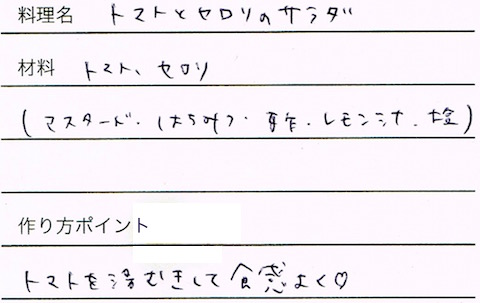 料理名 トマトとセロリのサラダ
材料 トマト、セロリ
(マスタード・はちみつ・酢・レモン汁・塩)
作り方ポイント
トマトを湯むきして食感よく♡